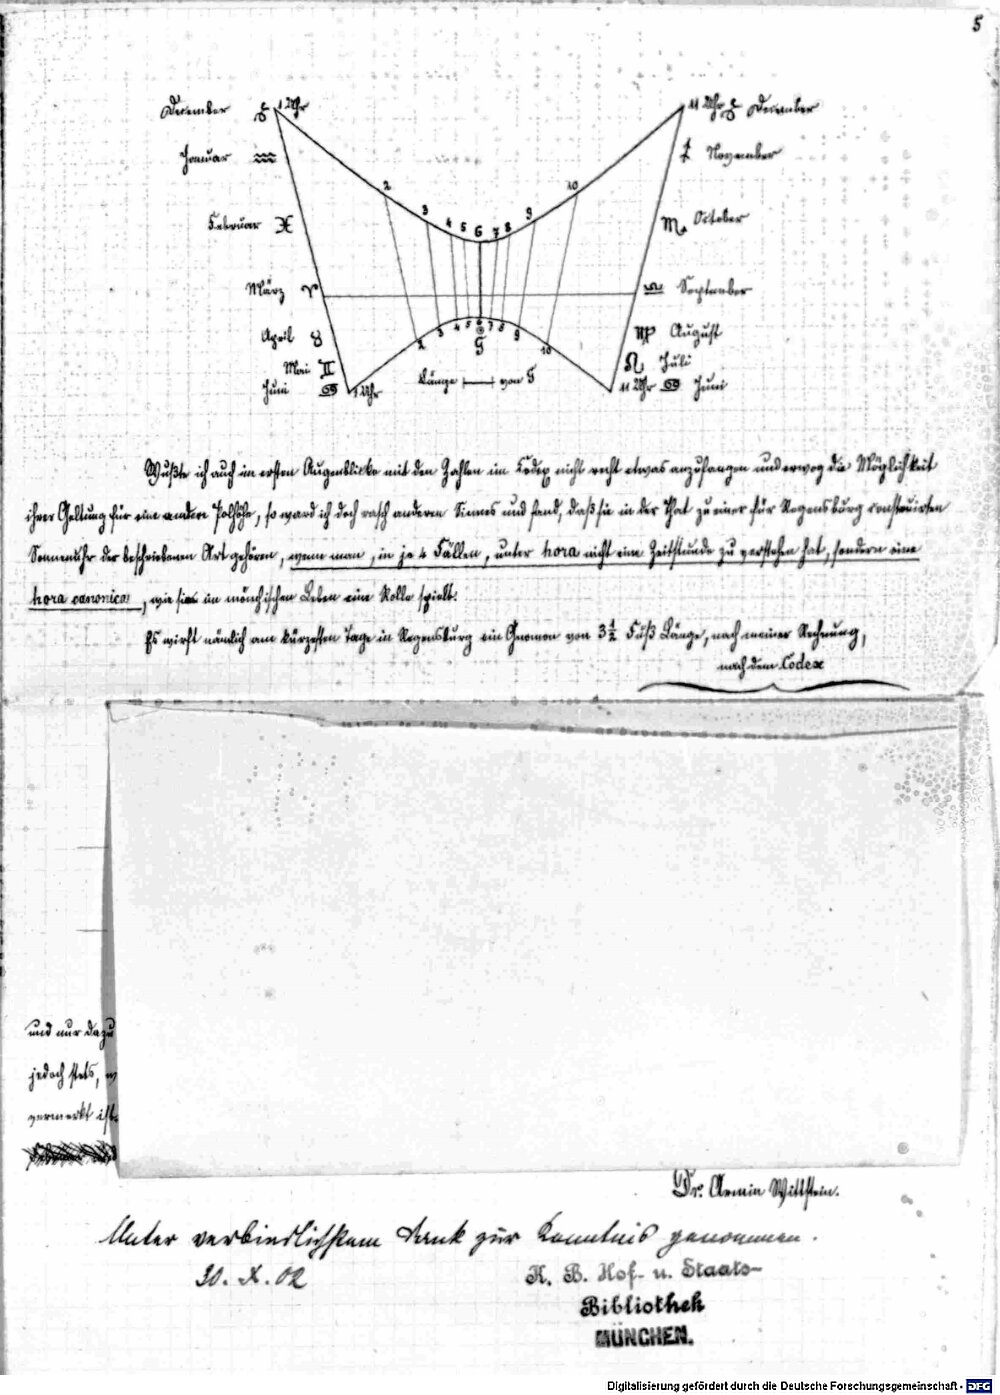 5
December ♑ 1 Uhr
11 Uhr ♑ December
Januar ♒
♐ November
2
10
Februar ♓
3 4 5 6 7 8 9
♏ October
März ♈
♎ September
April ♉
2 3 4 5 6 7 8 9 10
G
♍ August
Mai ♊
♌ Juli
Juni ♋ 1 Uhr
Länge von G
11 Uhr ♋ Juni
Wußte ich auch im ersten Augenblicke mit den Zahlen im Codex nicht recht etwas anzufangen und erwog die Möglichkeit
ihrer Geltung für eine andere Polhöhe, so ward ich doch rasch anderen Sinnes und fand, daß sie in der That zu einer für Regensburg construirten
Sonnenuhr der beschriebenen Art gehören, wenn man, in je 4 Fällen, unter hora nicht eine Zeitstunde zu verstehen hat, sondern eine
hora canonica, wie sie im mönchischen Leben eine Rolle spielt.
Es wirft nämlich am kürzesten Tage in Regensburg ein Gnomon von 3½ Fuß Länge, nach meiner Rechnung,
nach dem Codex
und nur dazu
jedoch stets,
vermerkt ist.
Dr. Armin Wittstein.
Unter verbindlichstem Dank zur Kenntnis genommen.
30. X. 02
K. B. Hof- u. Staats-
Bibliothek
MÜNCHEN.
Digitalisierung gefördert durch die Deutsche Forschungsgemeinschaft - DFG